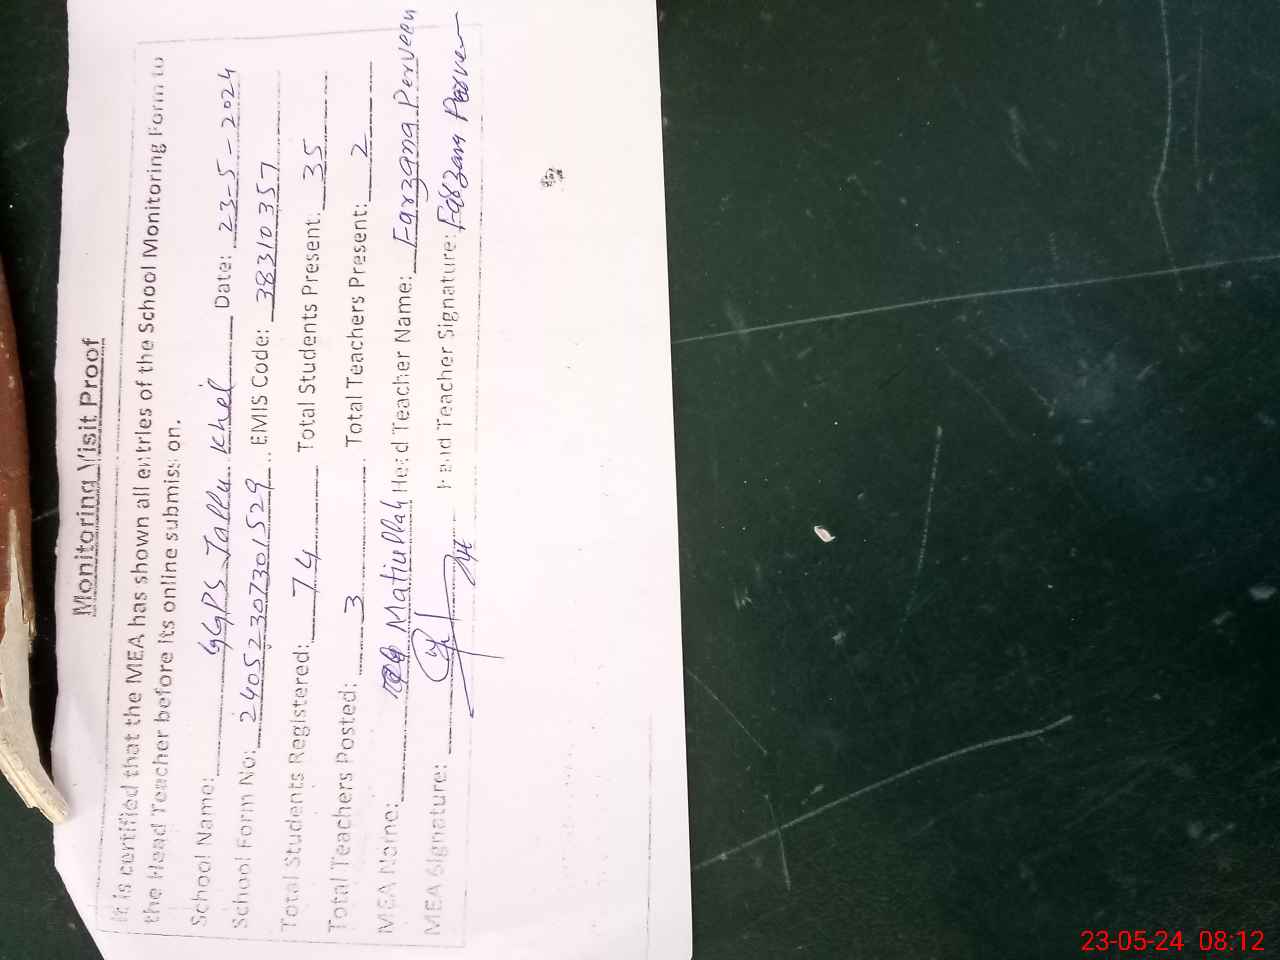 Monitoring Visit Proof
It is certified that the MEA has shown all entries of the School Monitoring Form to
the Head Teacher before its online submission.
School Name: GGPS Jallu Khel Date: 23-5-2024
School Form No: 24052307301529 EMIS Code: 38310357
Total Students Registered: 74 Total Students Present: 35
Total Teachers Posted: 3 Total Teachers Present: 2
MEA Name: Matiullah Head Teacher Name: Farzana Perveen
MEA Signature: Head Teacher Signature: Farzana Parveen
23-05-24 08:12